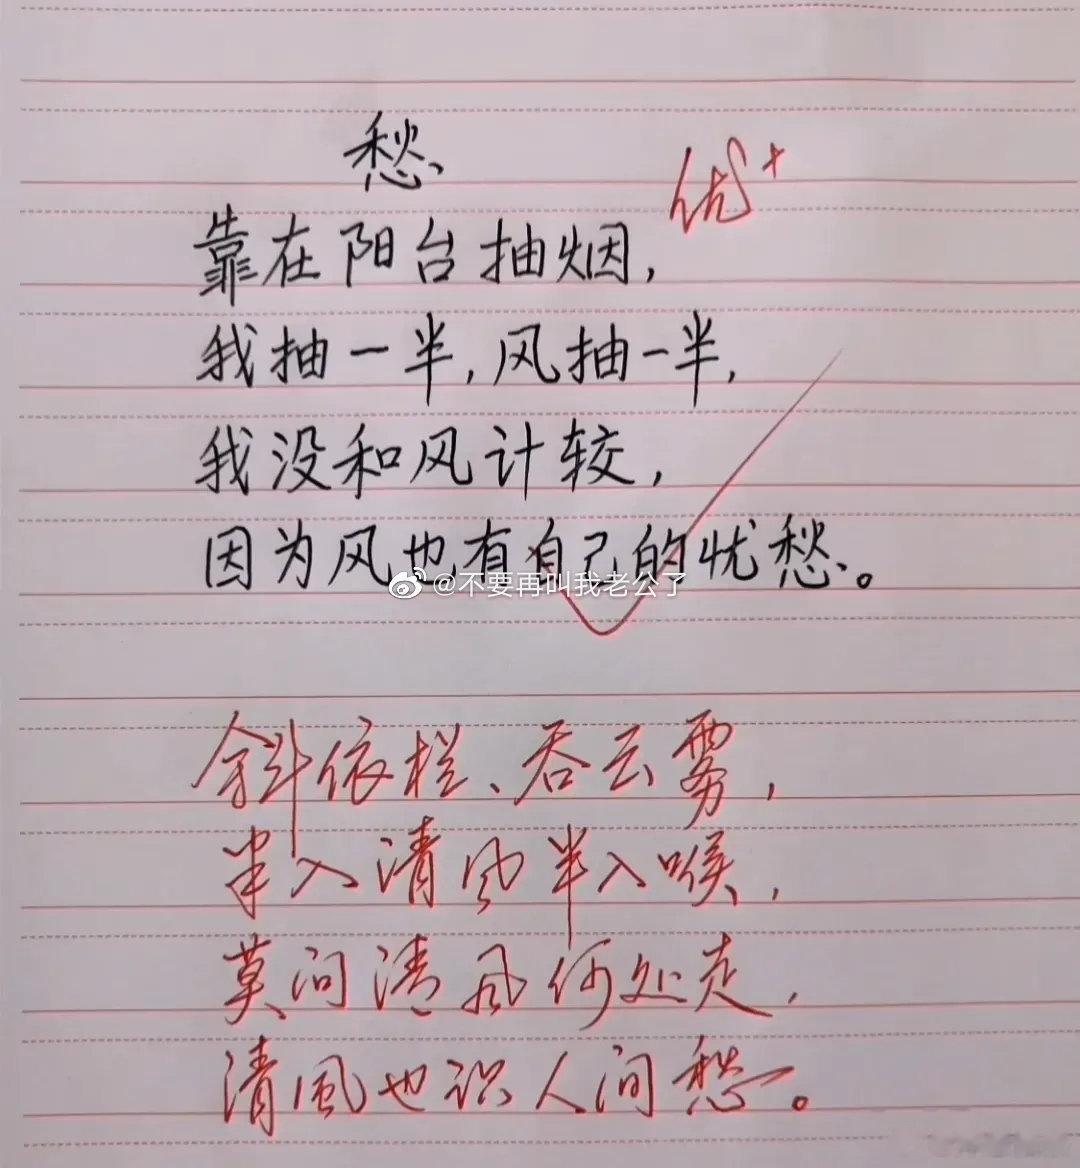 愁
优+
靠在阳台抽烟,
我抽一半,风抽一半,
我没和风计较,
因为风也有自己的忧愁。
@不要再叫我老公了
斜依栏、吞云雾,
半入清风半入喉,
莫问清风何处走,
清風也识人间愁。